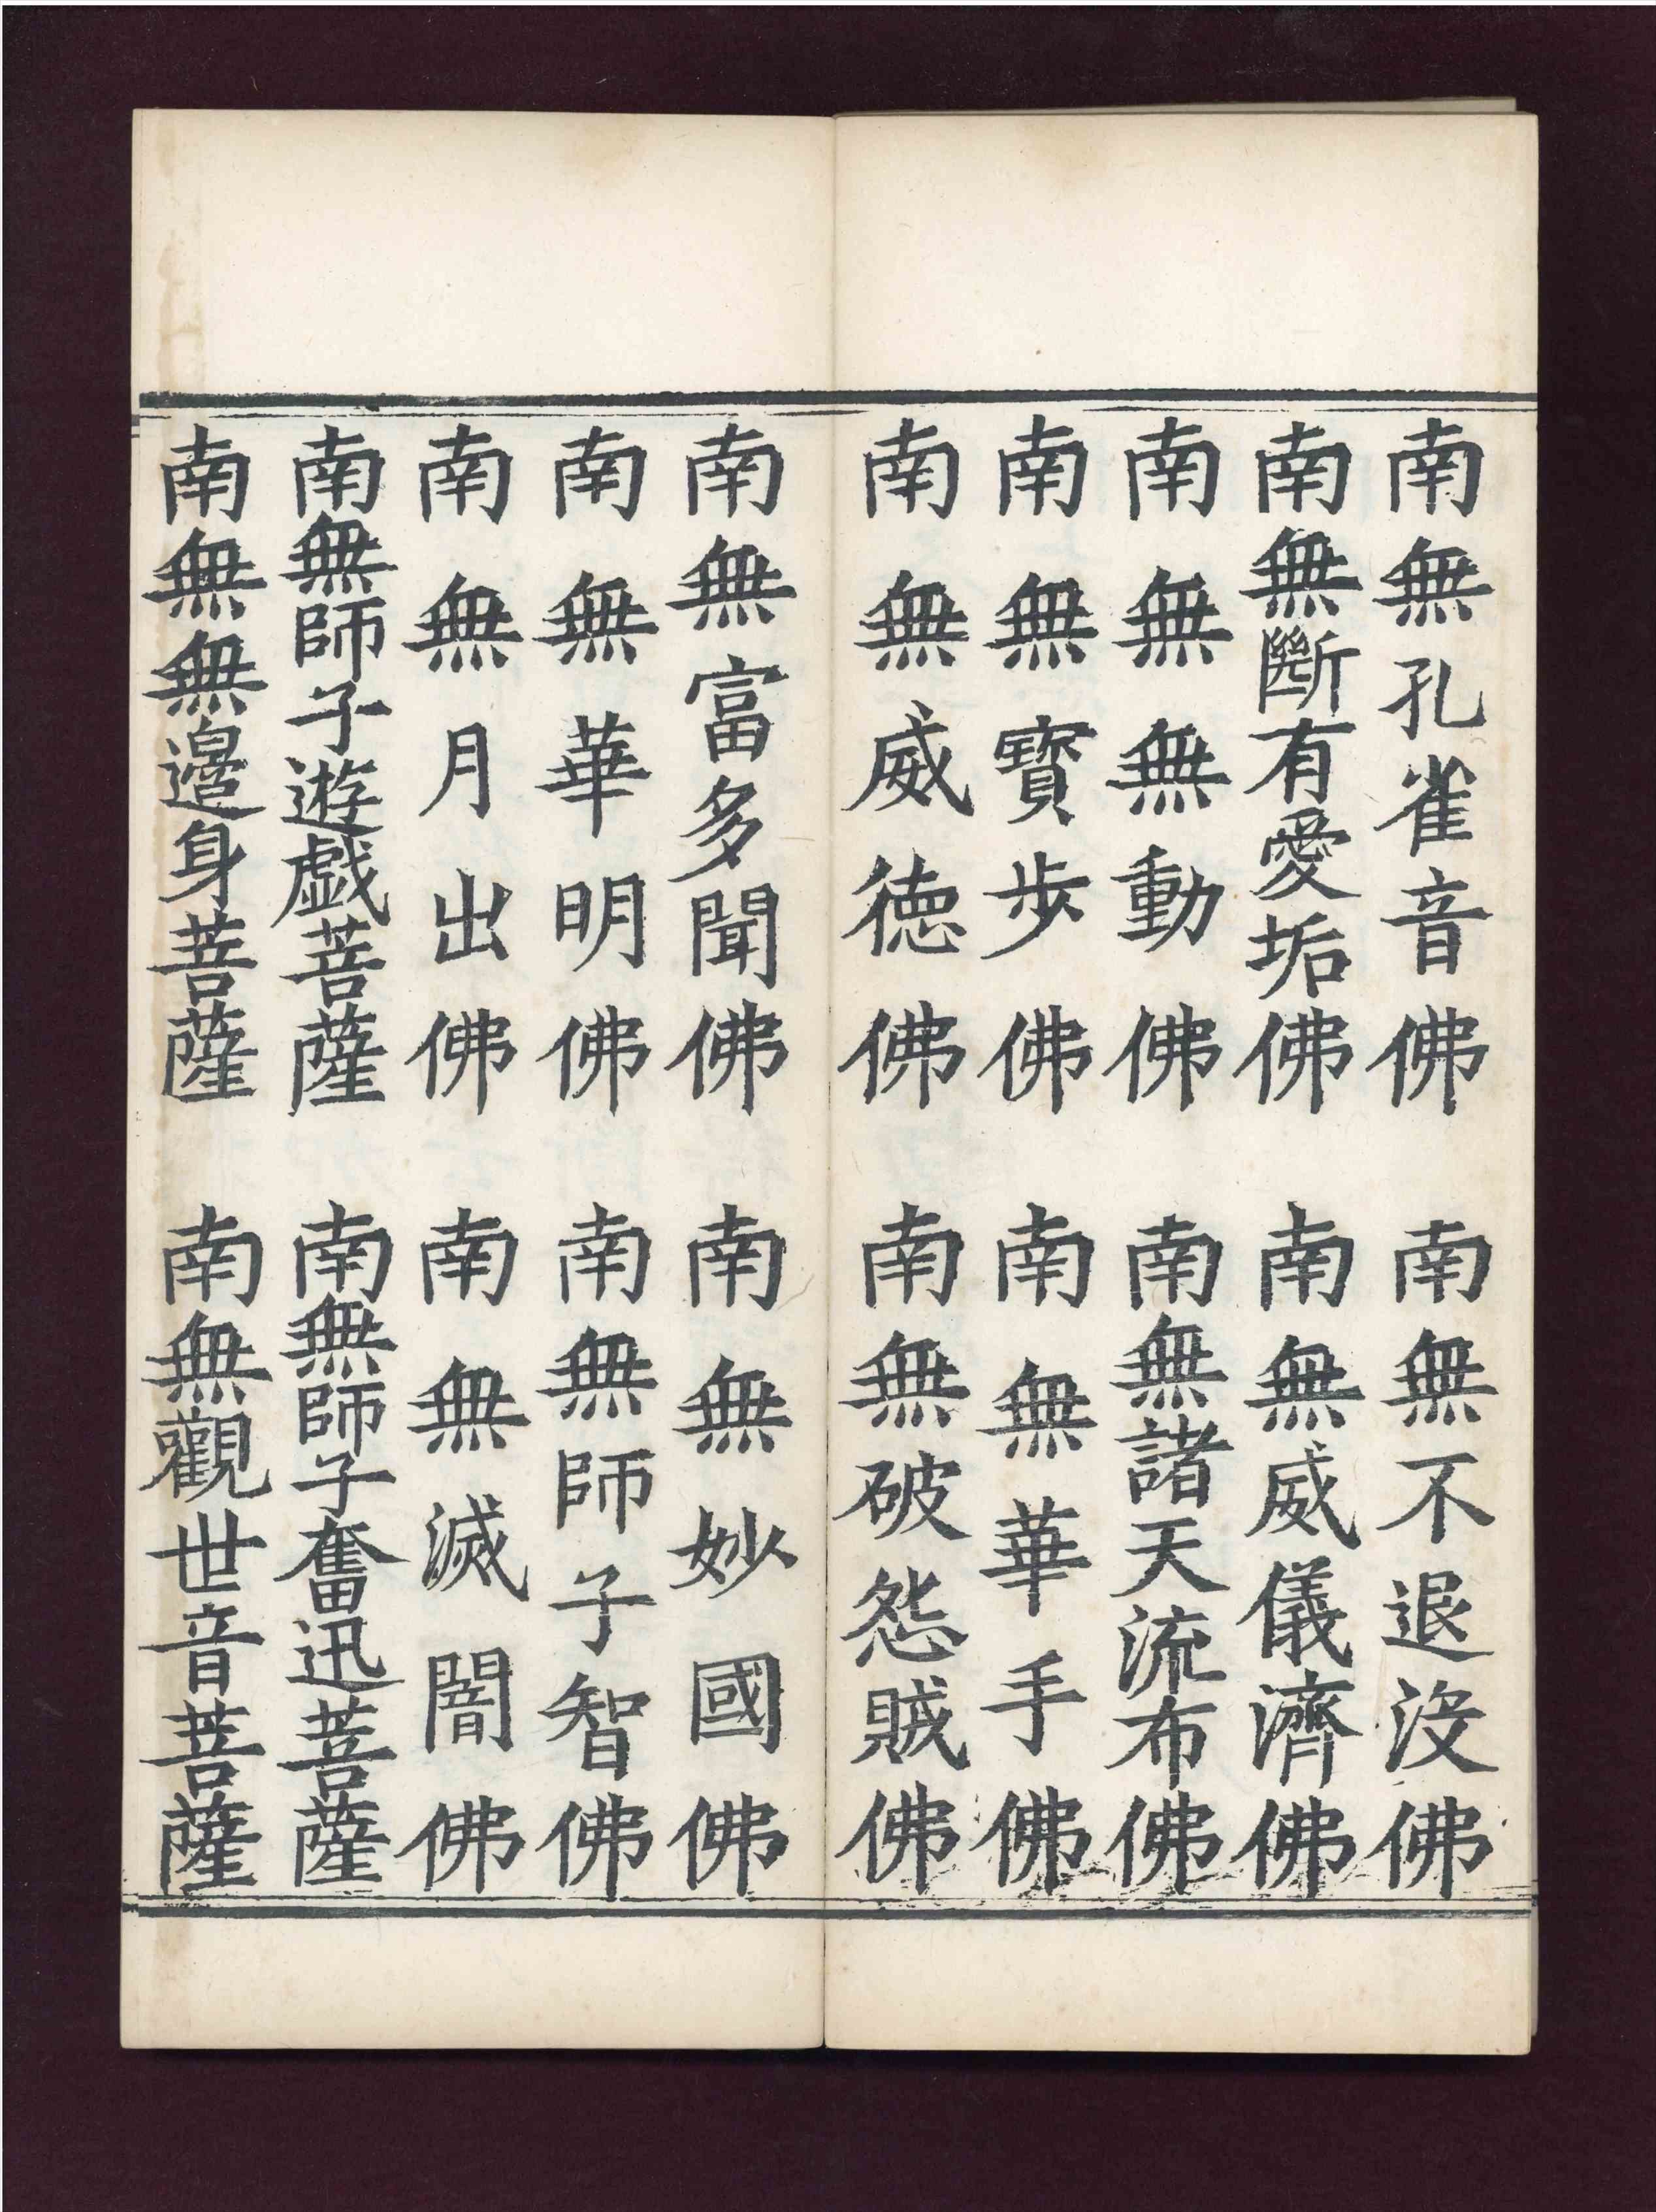 南無孔雀音佛　南無不退没佛
南無斷有愛垢佛　南無威儀濟佛
南無無動佛　南無諸天流布佛
南無寳步佛　南無華手佛
南無威德佛　南無破怨賊佛
南無富多聞佛　南無妙國佛
南無華明佛　南無師子智佛
南無月出佛　南無滅闇佛
南無師子遊戯菩薩　南無師子奮迅菩薩
南無無邊身菩薩　南無觀世音菩薩